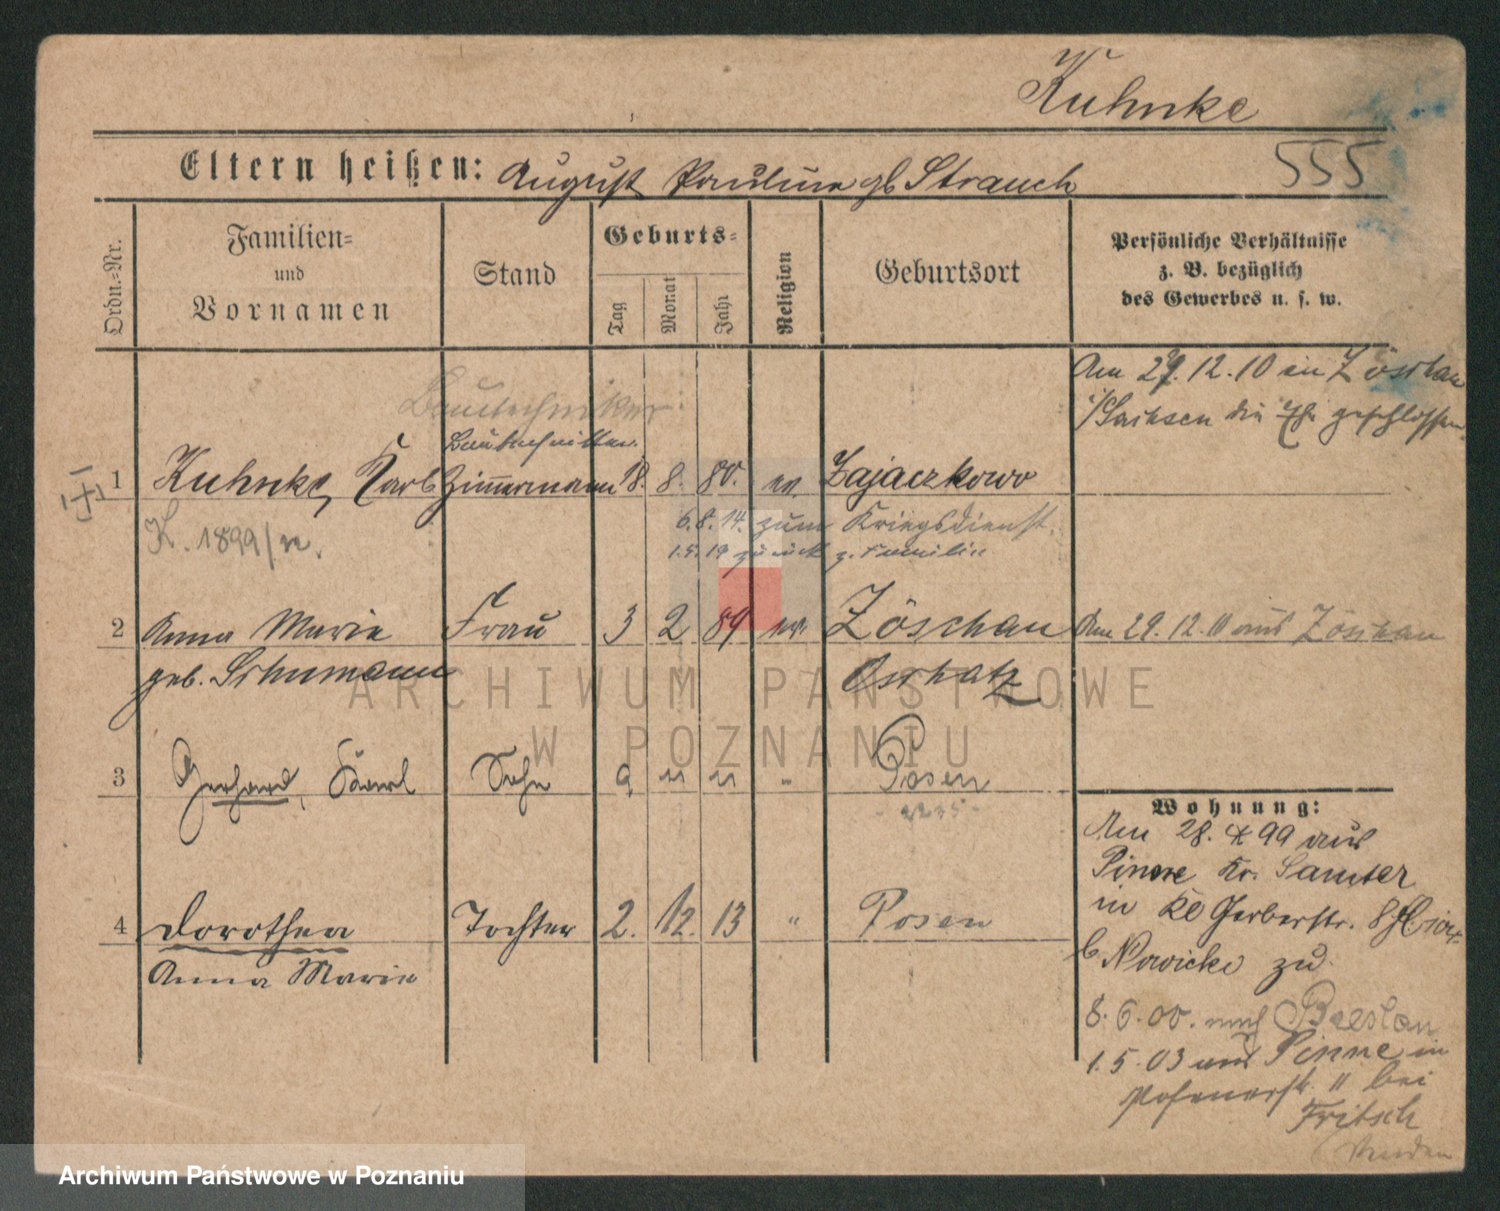 Kuhnke
555
Eltern heißen: August Pauline gb Strauch
Ordn.=Nr.
Familien=
und
Vornamen
Stand
Geburts=
Tag
Monat
Jahr
Religion
Geburtsort
Persönliche Verhältnisse
z. B. bezüglich
des Gewerbes u. s. w.
Am 29.12.10 in Zöschau
i/Sachsen die Ehe geschlossen
Bautechniker
Bautechniker
1 Kuhnke, Karl Zimmermann 18. 8. 80. ev. Zajaczkowo
K. 1899/
6.8.14. zum Kriegsdienst.
1.5.19 zurück z. Familie
2 Anna Marie Frau 3 2 89 ev. Zöschau Am 29.12.11 aus Zöschau
geb. Schumann Oschatz
3 Gerhard, Karl Sohn 9 " " " Posen
Wohnung:
Am 28. 4 99 aus
Pinne Kr. Samter
in Kl Gerberstr. 8
b Nowicki zu
4 Dorothea Tochter 2. 12. 13 " Posen
Anna Marie
8.6.00. nach Breslau
1.5.03 aus Pinne in
Posenerstr. 11 bei
Fritsch
ARCHIWUM PAŃSTWOWE
W POZNANIU
Archiwum Państwowe w Poznaniu